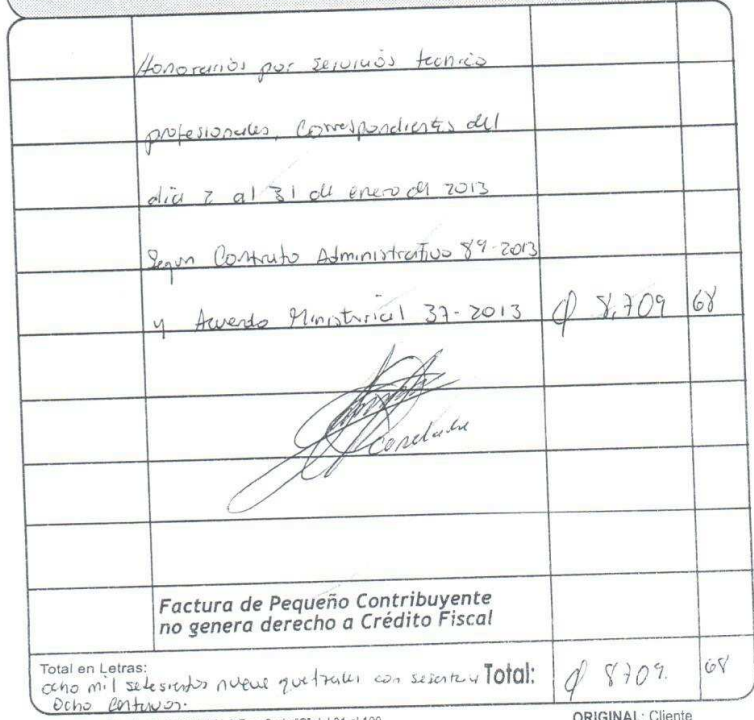 Honorarios por servicios tecnico
profesionales, Correspondientes del
día 2 al 31 de enero de 2013
Segun Contrato Administrativo 89-2013
y Acuerdo Ministerial 37-2013 Q 8,709 68
Cancelado
Factura de Pequeño Contribuyente
no genera derecho a Crédito Fiscal
Total en Letras:
ocho mil setesientos nueve quetzales con sesenta y Total: Q 8709. 68
Ocho centavos.
ORIGINAL: Cliente